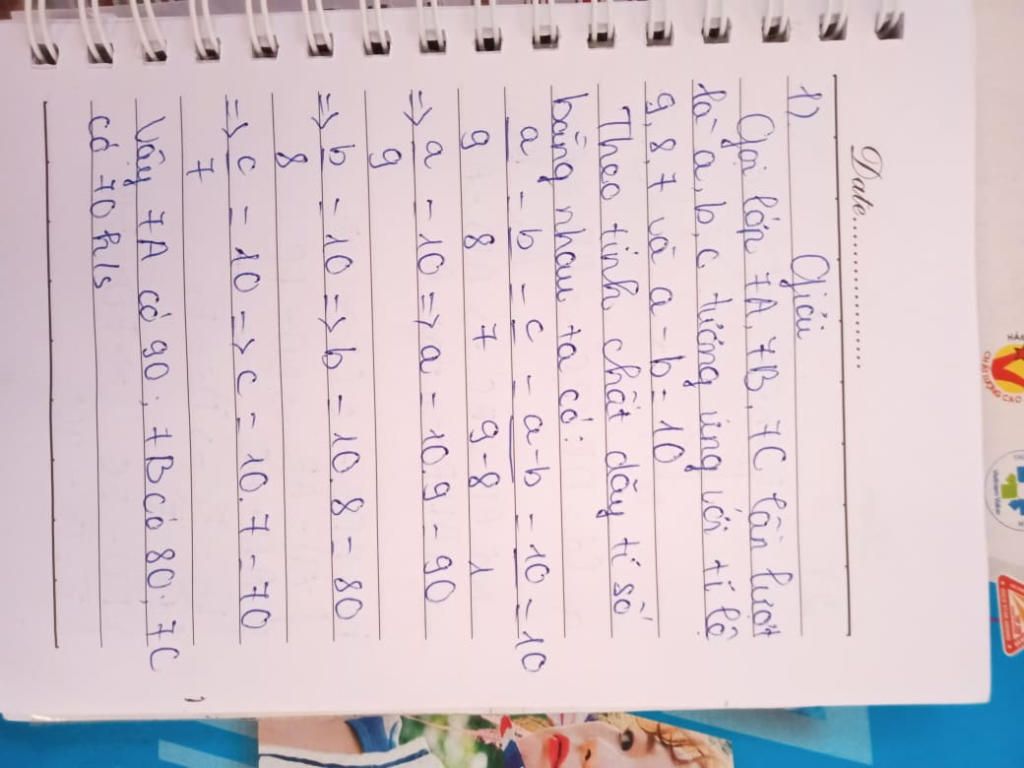 Date
1) Giải
Gọi lớp 7A, 7B, 7C lần lượt
là a, b, c tương ứng với tỉ lệ
9, 8, 7 và a - b = 10
Theo tính chất dãy tỉ số
bằng nhau ta có:
a/9 = b/8 = c/7 = a-b/9-8 = 10/1 = 10
=> a/9 = 10 => a = 10.9 = 90
=> b/8 = 10 => b = 10.8 = 80
=> c/7 = 10 => c = 10.7 = 70
Vậy 7A có 90, 7B có 80, 7C
có 70 h/s